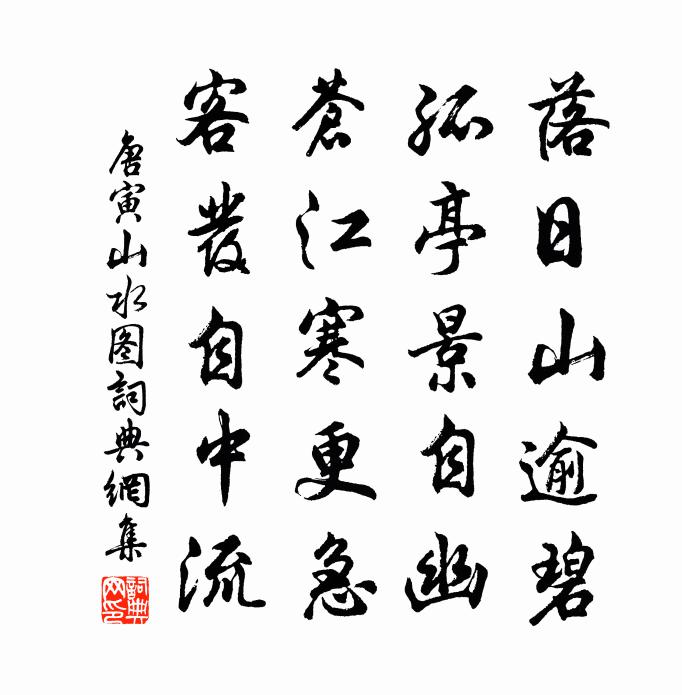 落日山逾碧
孤亭景自幽
蒼江寒更急
客發自中流
唐寅山水图詞典網集
詞典網印